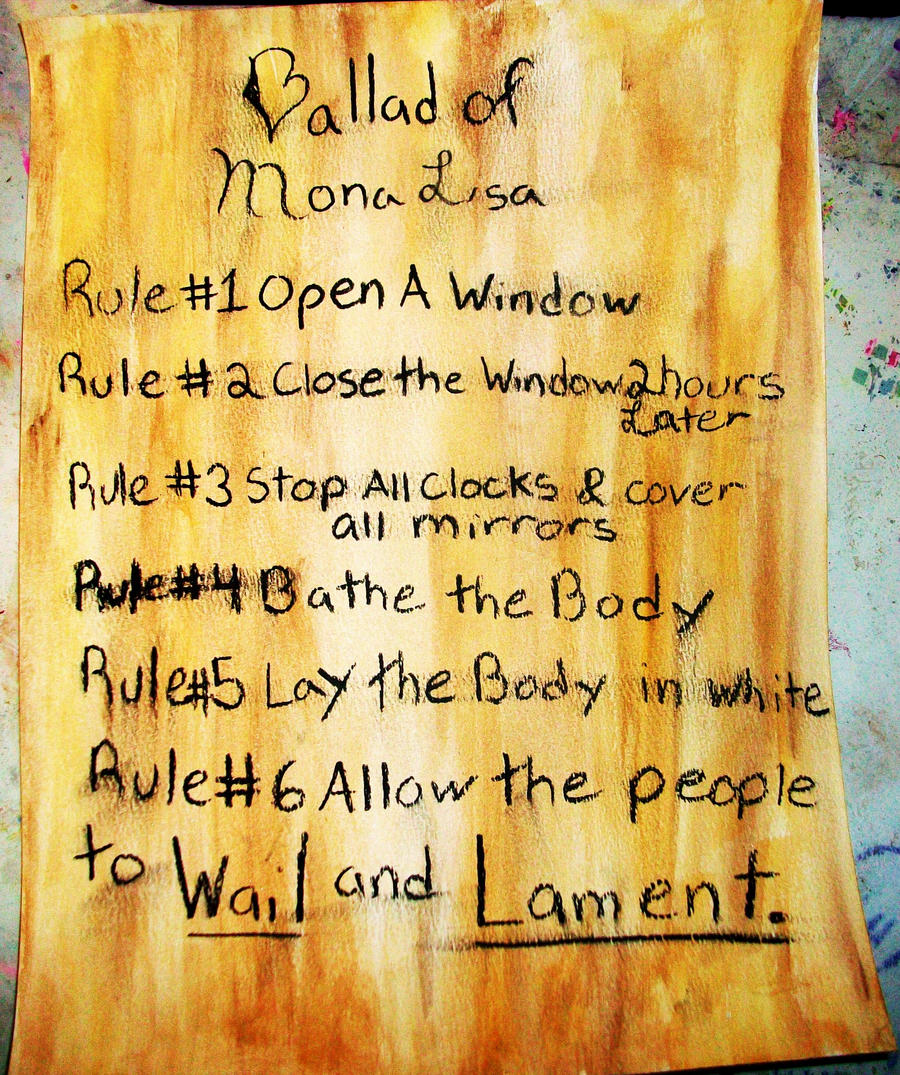 Ballad of
Mona Lisa
Rule #1 Open A Window
Rule #2 Close the Window 2 hours
Later
Rule #3 Stop All Clocks & cover
all mirrors
Rule #4 Bathe the Body
Rule #5 Lay the Body in white
Rule #6 Allow the people
to Wail and Lament.